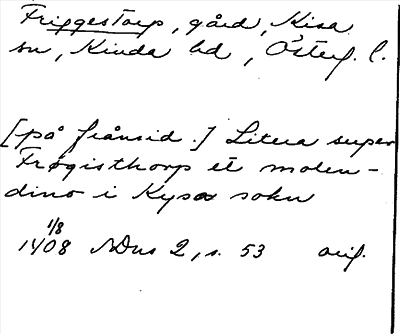 Friggestorp, gård, Kisa
sn, Kinda hd, Österg. l.
[på frånsid.] Litera super
Frøgisthorp et molen-
dino i Kysa sokn
1/8
1408 SDns 2, s. 53 orig.